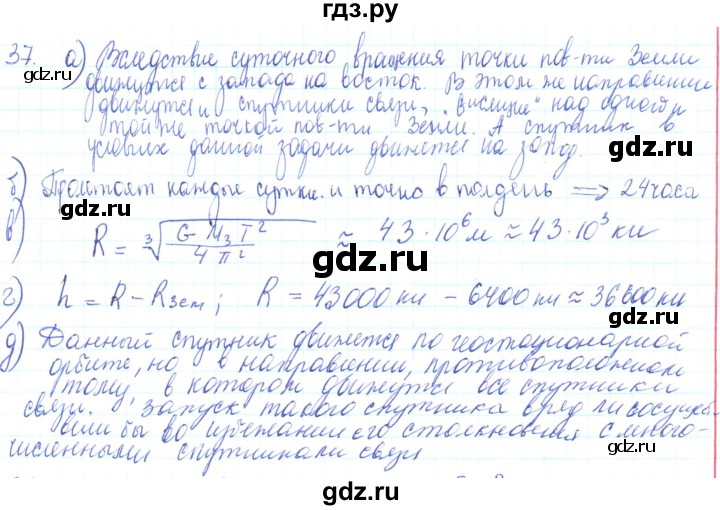 гдз.ру
37. а) Вследствие суточного вращения точки пов-ти Земли
движутся с запада на восток. В этом же направлении
движутся и спутники связи, "висящие" над одной и
той же точкой пов-ти Земли. А спутник в
условиях данной задачи движется на запад.
б) Пролетает каждые сутки и точно в полдень ⟹ 24 часа
в) R = ∛(G M₃ T² / 4π²) ≈ 43·10⁶ м ≈ 43·10³ км
г) h = R – Rзем; R = 43000 км – 6400 км ≈ 36600 км
д) Данный спутник движется по геостационарной
орбите, но в направлении, противоположном
тому, в котором движутся все спутники
связи. Запуск такого спутника вряд ли осущес
или бы во избежании его столкновения с много-
численными спутниками связи
gdz.ru
gdz.ru
gdz.ru
gdz.ru
gdz.ru
gdz.ru
gdz.ru
gdz.ru
gdz.ru